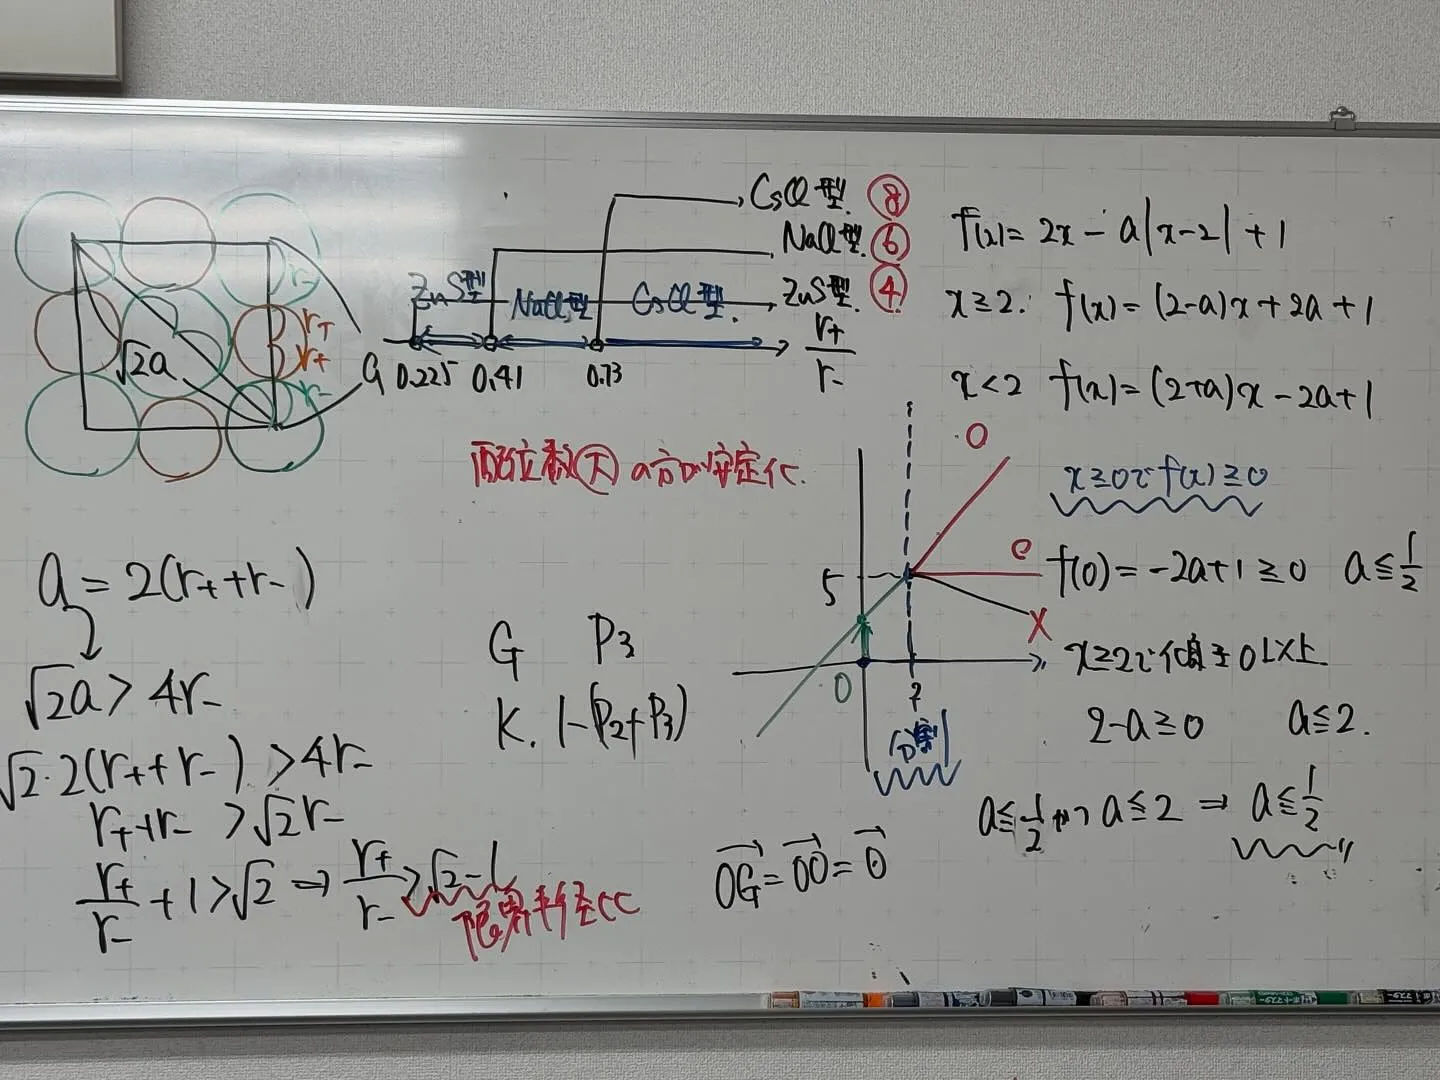 r-
r+
r+
r-
√2a
a
CsCl型 ⑧
NaCl型 ⑥
ZnS型 ④
ZnS型
NaCl型
CsCl型.
0.225 0.41 0.73
r+/r-
配位数(大)の方が安定化.
a = 2(r+ + r-)
√2a > 4r-
√2·2(r+ + r-) > 4r-
r+ + r- > √2r-
r+/r- + 1 > √2 ⇒ r+/r- > √2-1
限界半径比
G P3
K. 1-(P2+P3)
f(x) = 2x - a|x-2| + 1
x≧2: f(x) = (2-a)x + 2a + 1
x<2 f(x) = (2+a)x - 2a + 1
x≧0で f(x)≧0
f(0) = -2a+1 ≧ 0 a≦1/2
x≧2で傾き0以上
2-a≧0 a≦2.
a≦1/2 かつ a≦2 ⇒ a≦1/2
5
0
2
O
X
OG→ = OO→ = 0→